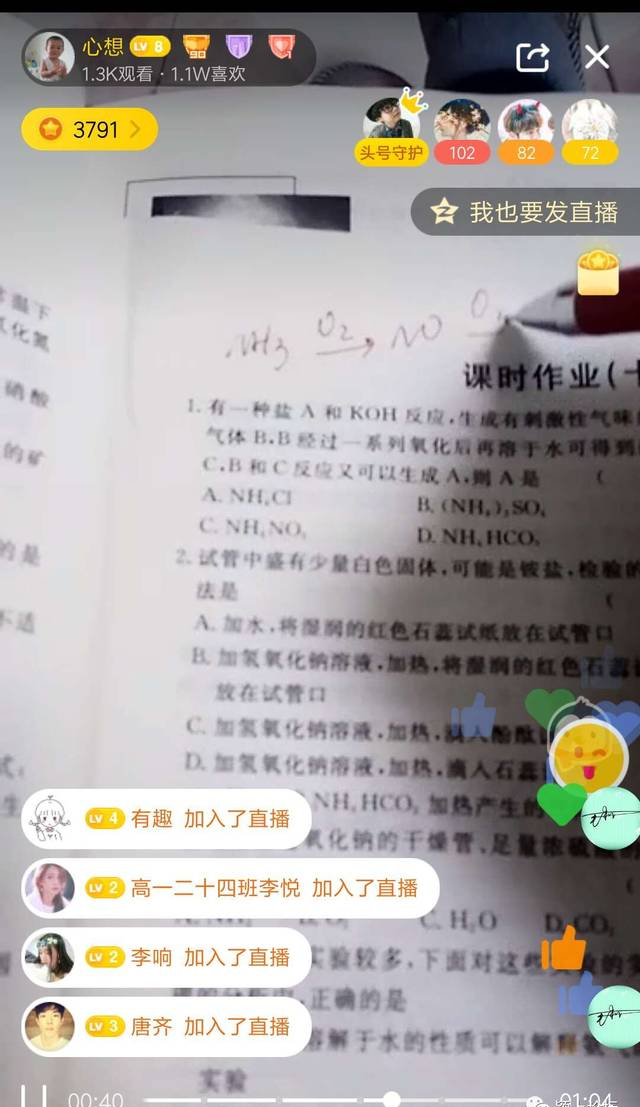 心想 LV 8 90
1.3K观看 · 1.1W喜欢
3791
头号守护 102 82 72
我也要发直播
NH3 O2→ NO O2
课时作业(十
1. 有一种盐 A 和 KOH 反应,生成有刺激性气味
气体 B,B 经过一系列氧化后再溶于水可得到
C,B 和 C 反应又可以生成 A,则 A 是 (
A. NH₄Cl B. (NH₄)₂SO₄
C. NH₄NO₃ D. NH₄HCO₃
2. 试管中盛有少量白色固体,可能是铵盐,检验的
法是 (
A. 加水,将湿润的红色石蕊试纸放在试管口
B. 加氢氧化钠溶液,加热,将湿润的红色石蕊
放在试管口
C. 加氢氧化钠溶液,加热,滴入酚酞
D. 加氢氧化钠溶液,加热,滴入石蕊
NH₄HCO₃ 加热产生的
LV 4 有趣 加入了直播
氧化钠的干燥管、足量浓硫酸
LV 2 高一二十四班李悦 加入了直播
C. H₂O D. CO₂
LV 2 李响 加入了直播
实验较多,下面对这些
正确的是
LV 3 唐齐 加入了直播
溶解于水的性质可以解释氨
实验
00:40 01:04
温下
化氮
硝酸
的矿
的是
不适